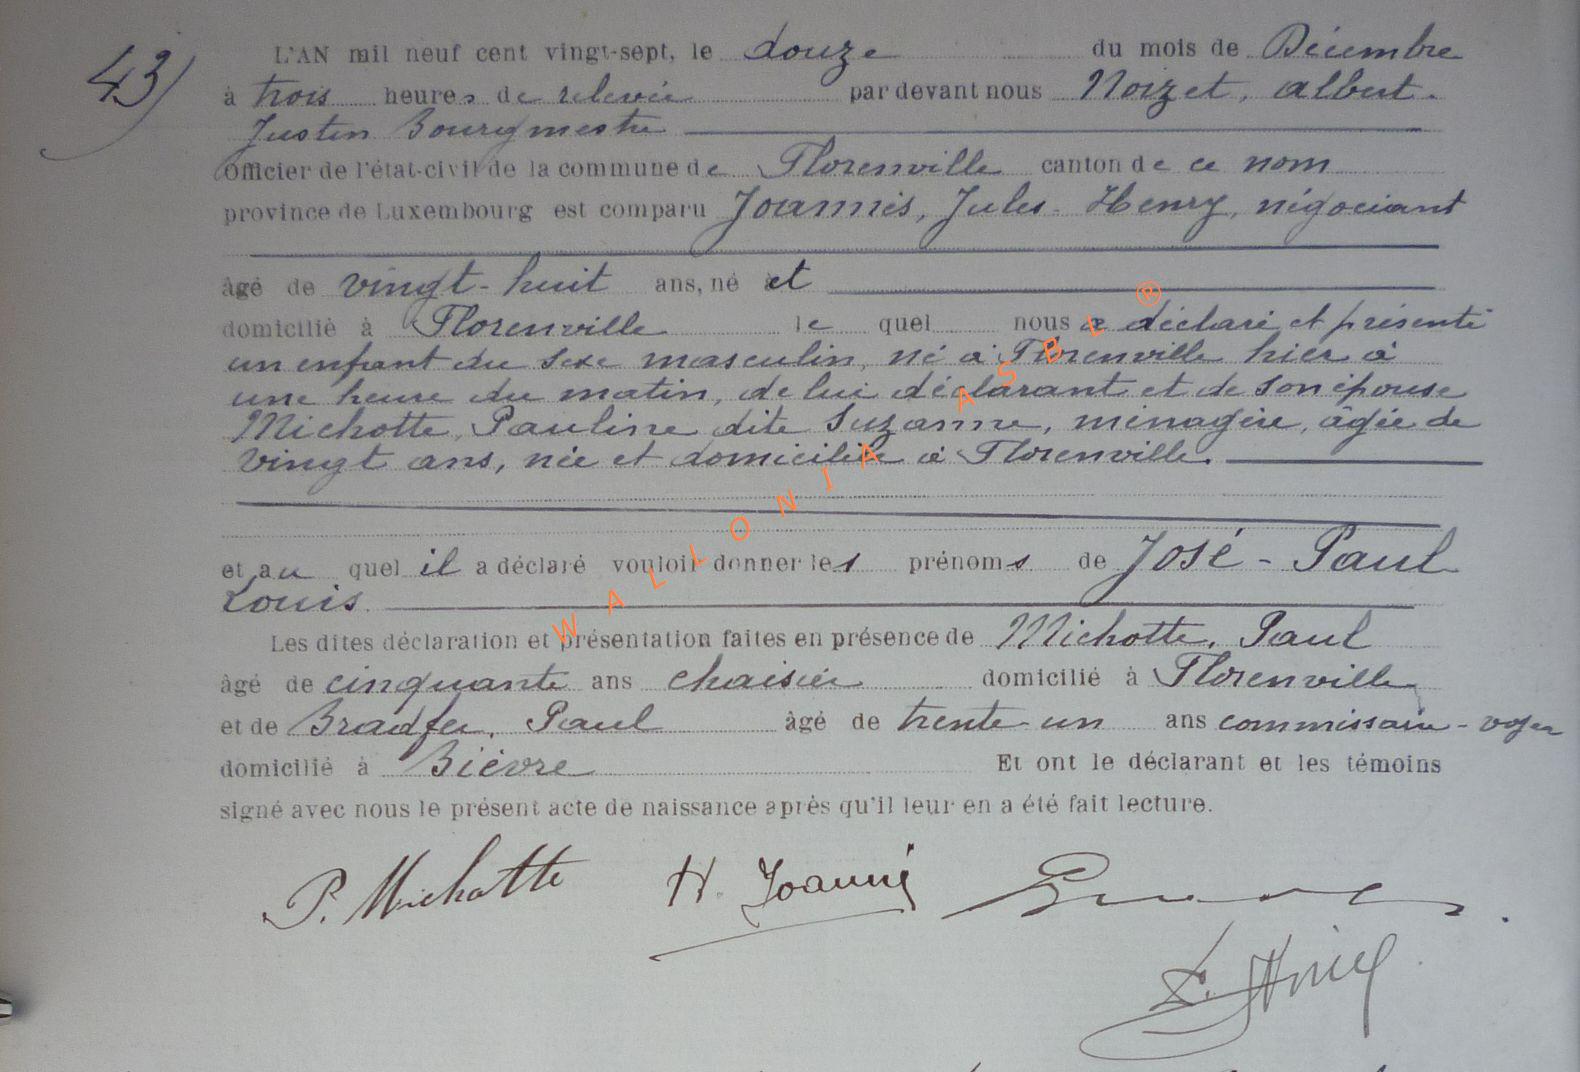 43)
L'AN mil neuf cent vingt-sept, le douze du mois de Décembre
à trois heures de relevée par devant nous Noizet, Albert.
Justin Bourgmestre
Officier de l'état-civil de la commune de Florenville canton de ce nom
province de Luxembourg est comparu Joannès, Jules-Henry, négociant
âgé de vingt-huit ans, né et
domicilié à Florenville le quel nous a déclaré et présenté
un enfant du sexe masculin, né à Florenville hier à
une heure du matin, de lui déclarant et de son épouse
Michotte, Pauline dite Suzanne, ménagère, âgée de
vingt ans, née et domiciliée à Florenville.
et au quel il a déclaré vouloir donner les prénoms de José-Paul
Louis.
Les dites déclaration et présentation faites en présence de Michotte, Paul
âgé de cinquante ans chaisier domicilié à Florenville
et de Bradfer, Paul âgé de trente-un ans commissaire-voyer
domicilié à Bièvre Et ont le déclarant et les témoins
signé avec nous le présent acte de naissance après qu'il leur en a été fait lecture.
P. Michotte H. Joannès
WALLONIA ASBL ®